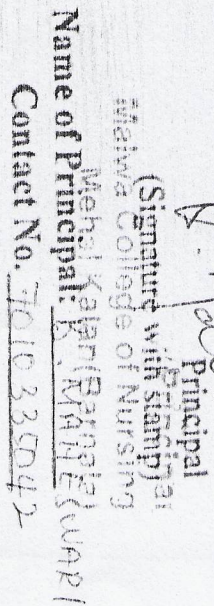 Principal
(Signature with stamp)
Principal
Malwa College of Nursing
Mehal Kalan (Barnala)
Name of Principal: K. MAHESWARI
Contact No.